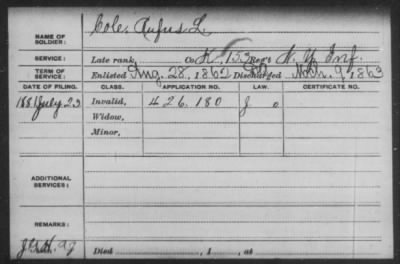 NAME OF SOLDIER: Cole, Rufus L.
SERVICE: Late rank, Co. K, 153 Reg't N. Y. Inf.
TERM OF SERVICE: Enlisted Aug. 28, 1862 Discharged Mch. 9, 1863
DATE OF FILING. CLASS. APPLICATION NO. LAW. CERTIFICATE NO.
1881 July 23 Invalid, 426.180
Widow,
Minor,
ADDITIONAL SERVICES:
REMARKS:
Died , 1 , at